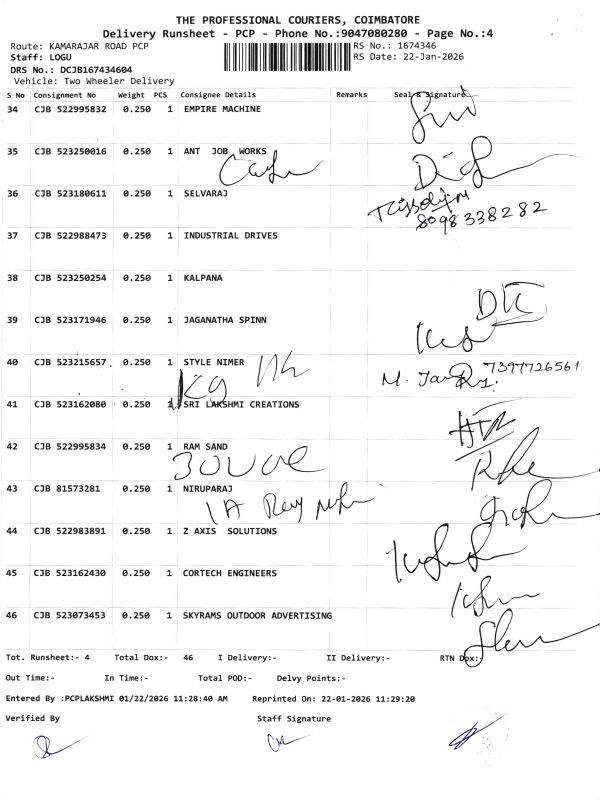 THE PROFESSIONAL COURIERS, COIMBATORE
Delivery Runsheet - PCP - Phone No.:9047080280 - Page No.:4
Route: KAMARAJAR ROAD PCP RS No.: 1674346
Staff: LOGU RS Date: 22-Jan-2026
DRS No.: DCJB167434604
Vehicle: Two Wheeler Delivery
S No Consignment No Weight PCS Consignee Details Remarks Seal & Signature
34 CJB 522995832 0.250 1 EMPIRE MACHINE
35 CJB 523250016 0.250 1 ANT JOB WORKS
36 CJB 523180611 0.250 1 SELVARAJ
8098338282
37 CJB 522988473 0.250 1 INDUSTRIAL DRIVES
38 CJB 523250254 0.250 1 KALPANA
39 CJB 523171946 0.250 1 JAGANATHA SPINN
40 CJB 523215657 0.250 1 STYLE NIMER
7397726561
41 CJB 523162080 0.250 1 SRI LAKSHMI CREATIONS
42 CJB 522995834 0.250 1 RAM SAND
43 CJB 81573281 0.250 1 NIRUPARAJ
44 CJB 522983891 0.250 1 Z AXIS SOLUTIONS
45 CJB 523162430 0.250 1 CORTECH ENGINEERS
46 CJB 523073453 0.250 1 SKYRAMS OUTDOOR ADVERTISING
Tot. Runsheet:- 4 Total Dox:- 46 I Delivery:- II Delivery:- RTN Dox:-
Out Time:- In Time:- Total POD:- Delvy Points:-
Entered By :PCPLAKSHMI 01/22/2026 11:28:40 AM Reprinted On: 22-01-2026 11:29:20
Verified By Staff Signature